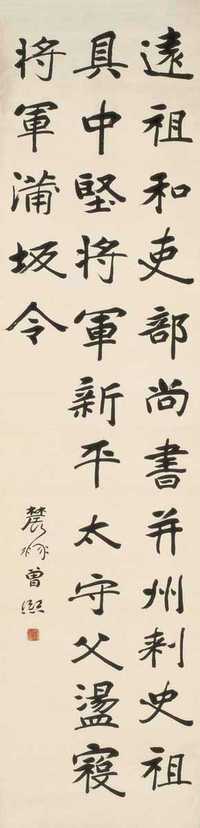 遠祖和吏部尚書并州刺史祖
具中堅將軍新平太守父盪寇
將軍蒲坂令
農髯曾熙